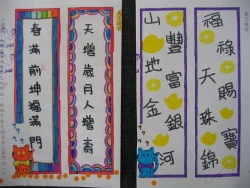 福祿天賜珠寶錦
山豐地富金銀河
天增歲月人增壽
春滿前坤福滿門